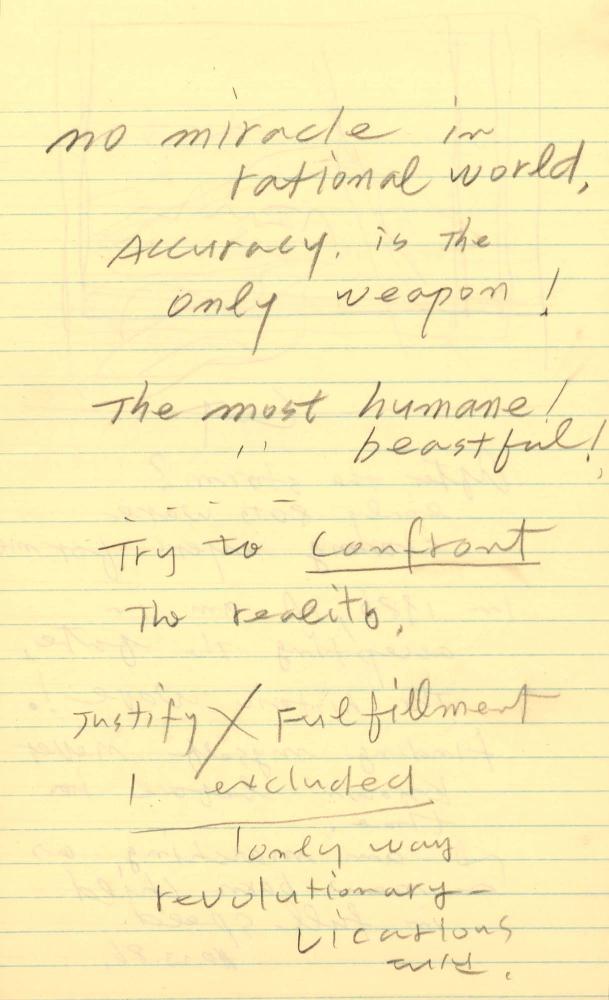 no miracle in
rational world,
Accuracy. is the
only weapon!
The most humane!
" beastful!
Try to confront
The reality.
Justify Fulfillment
excluded
only way
revolutionary-
vicarious